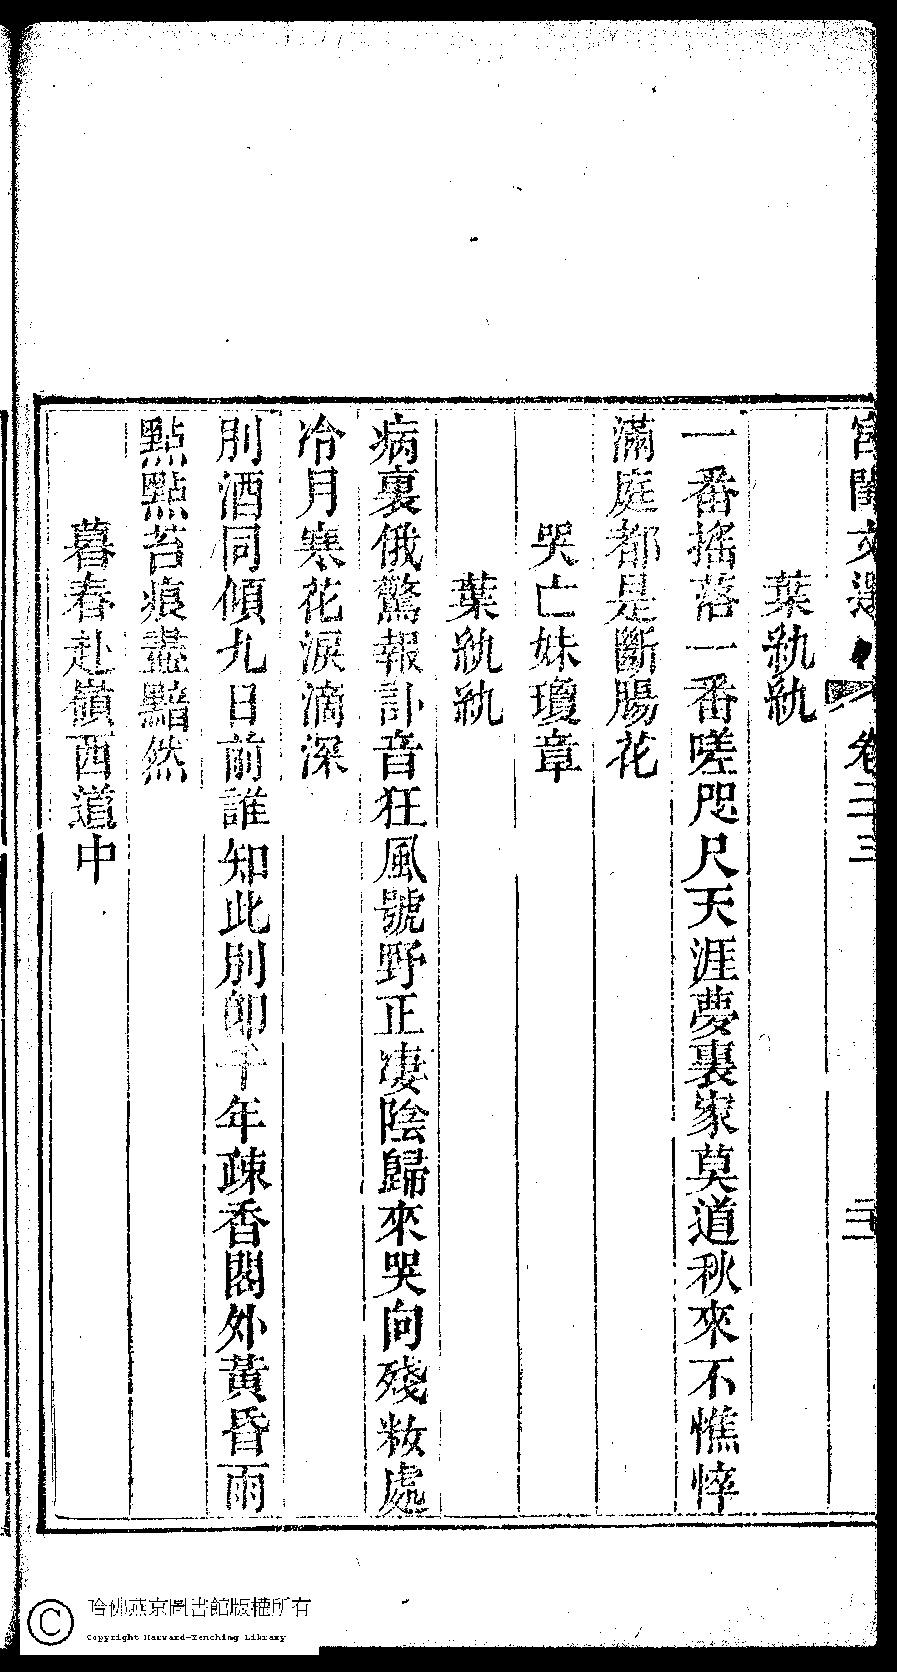 宮閨文選 卷二十三 三十一
葉紈紈
一番搖落一番嗟咫尺天涯夢裏家莫道秋來不憔悴
滿庭都是斷腸花
哭亡妹瓊章
葉紈紈
病裏俄驚報訃音狂風號野正凄陰歸來哭向殘粧處
冷月寒花淚滴深
別酒同傾九日前誰知此別卽千年疎香閣外黃昏雨
點點苔痕盡黯然
暮春赴嶺西道中
© 哈佛燕京圖書館版權所有
Copyright Harvard-Yenching Library